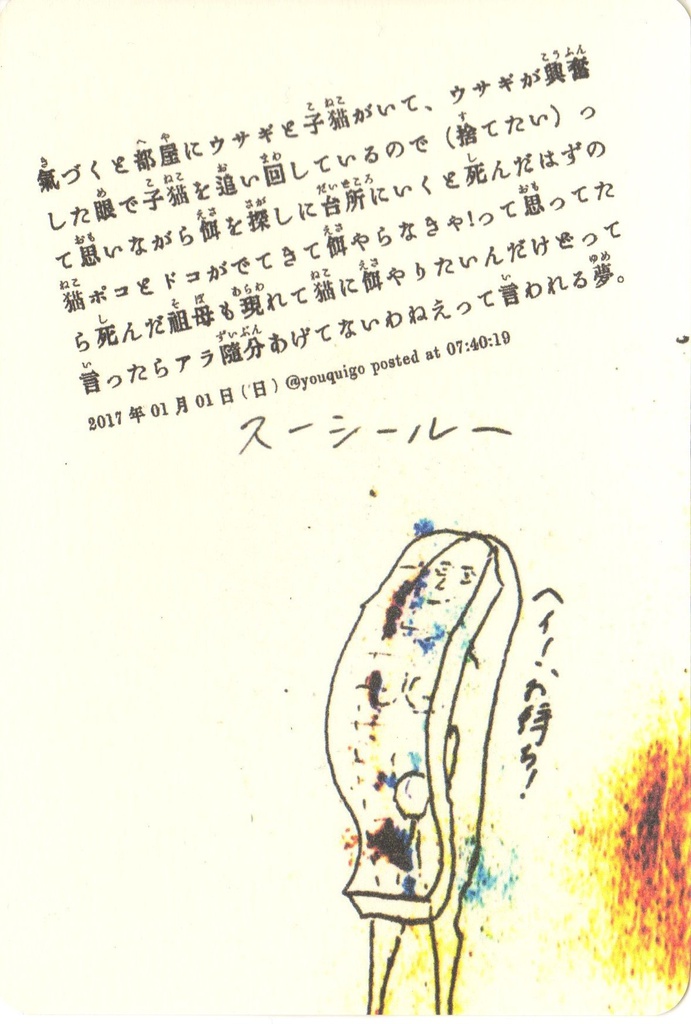 氣づくと部屋にウサギと子猫がいて、ウサギが興奮
した眼で子猫を追い回しているので（捨てたい）っ
て思いながら餌を探しに台所にいくと死んだはずの
猫ポコとドコがでてきて餌やらなきゃ!って思ってた
ら死んだ祖母も現れて猫に餌やりたいんだけどって
言ったらアラ随分あげてないわねえって言われる夢。
2017年01月01日（日）@youquigo posted at 07:40:19
スーシールー
ヘイ!お待ち!